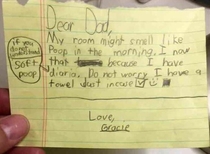 Dear Dad,
My room might smell like
Poop in the morning. I now
that because I have
diaria. Do not worry I have a
towel dust incase
if you
do not understand
soft
poop
Love,
Gracie